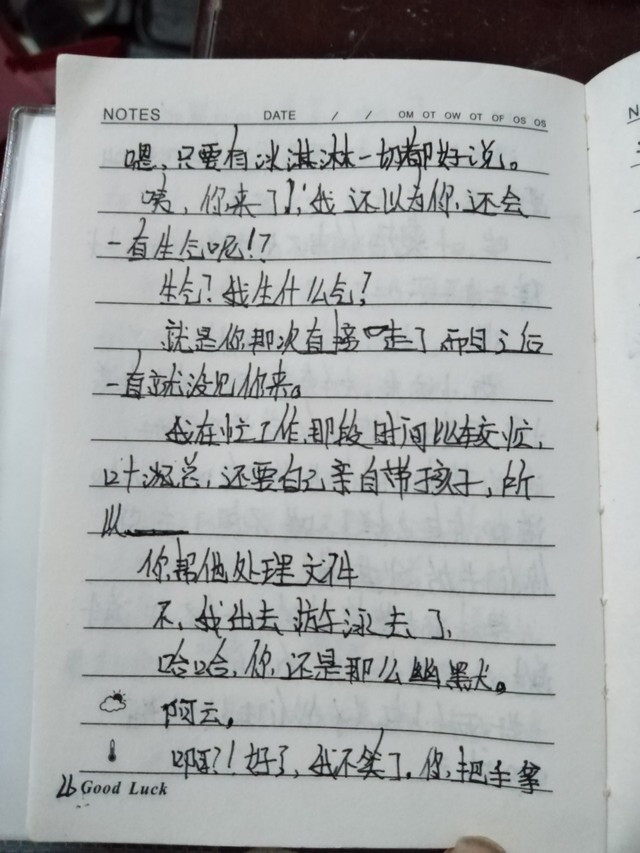 NOTES DATE / / OM OT OW OT OF OS OS
嗯，只要有冰淇淋一切都好说。
咦，你来了！，我还以为你还会
一直生气呢！？
生气？我生什么气？
就是你那次直接走了而且之后
一直就没见你来。
我在忙工作，那段时间比较忙，
叶游总，还要自己亲自带孩子，所
以——
你帮他处理文件
不，我出去游泳去了，
哈哈，你还是那么幽默。
阿云。
啊？！好了，我不笑了。你把手拿
26 Good Luck